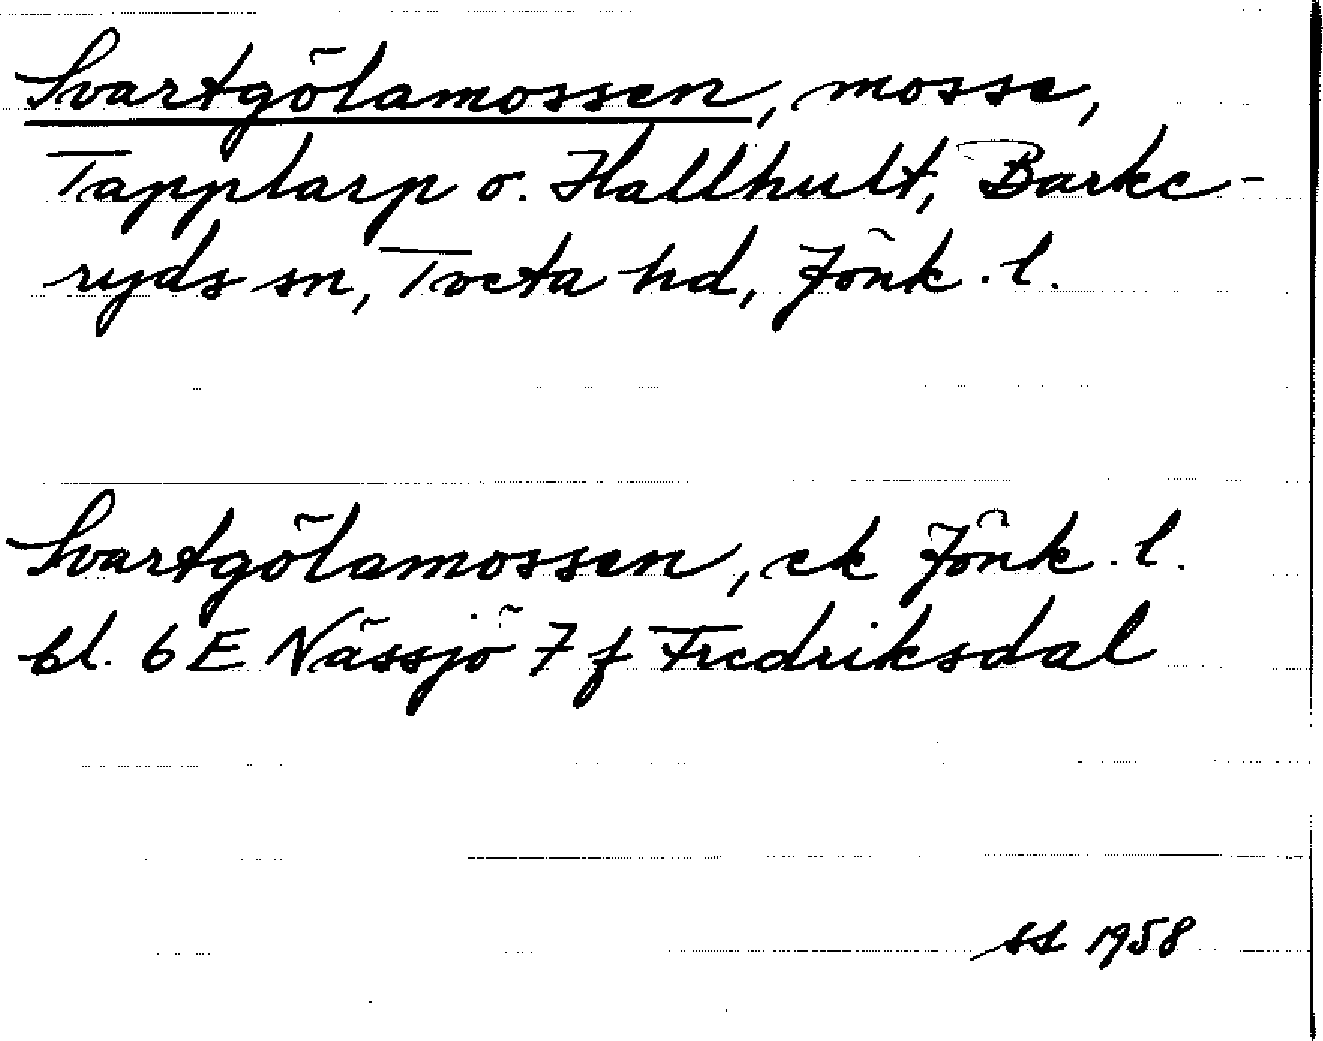 Svartgölamossen, mosse,
Tapplarp o. Hallhult, Barke-
ryds sn, Tveta hd, Jönk. l.
Svartgölamossen, ek Jönk. l.
bl. 6 E Nässjö 7 f Fredriksdal
SS 1958